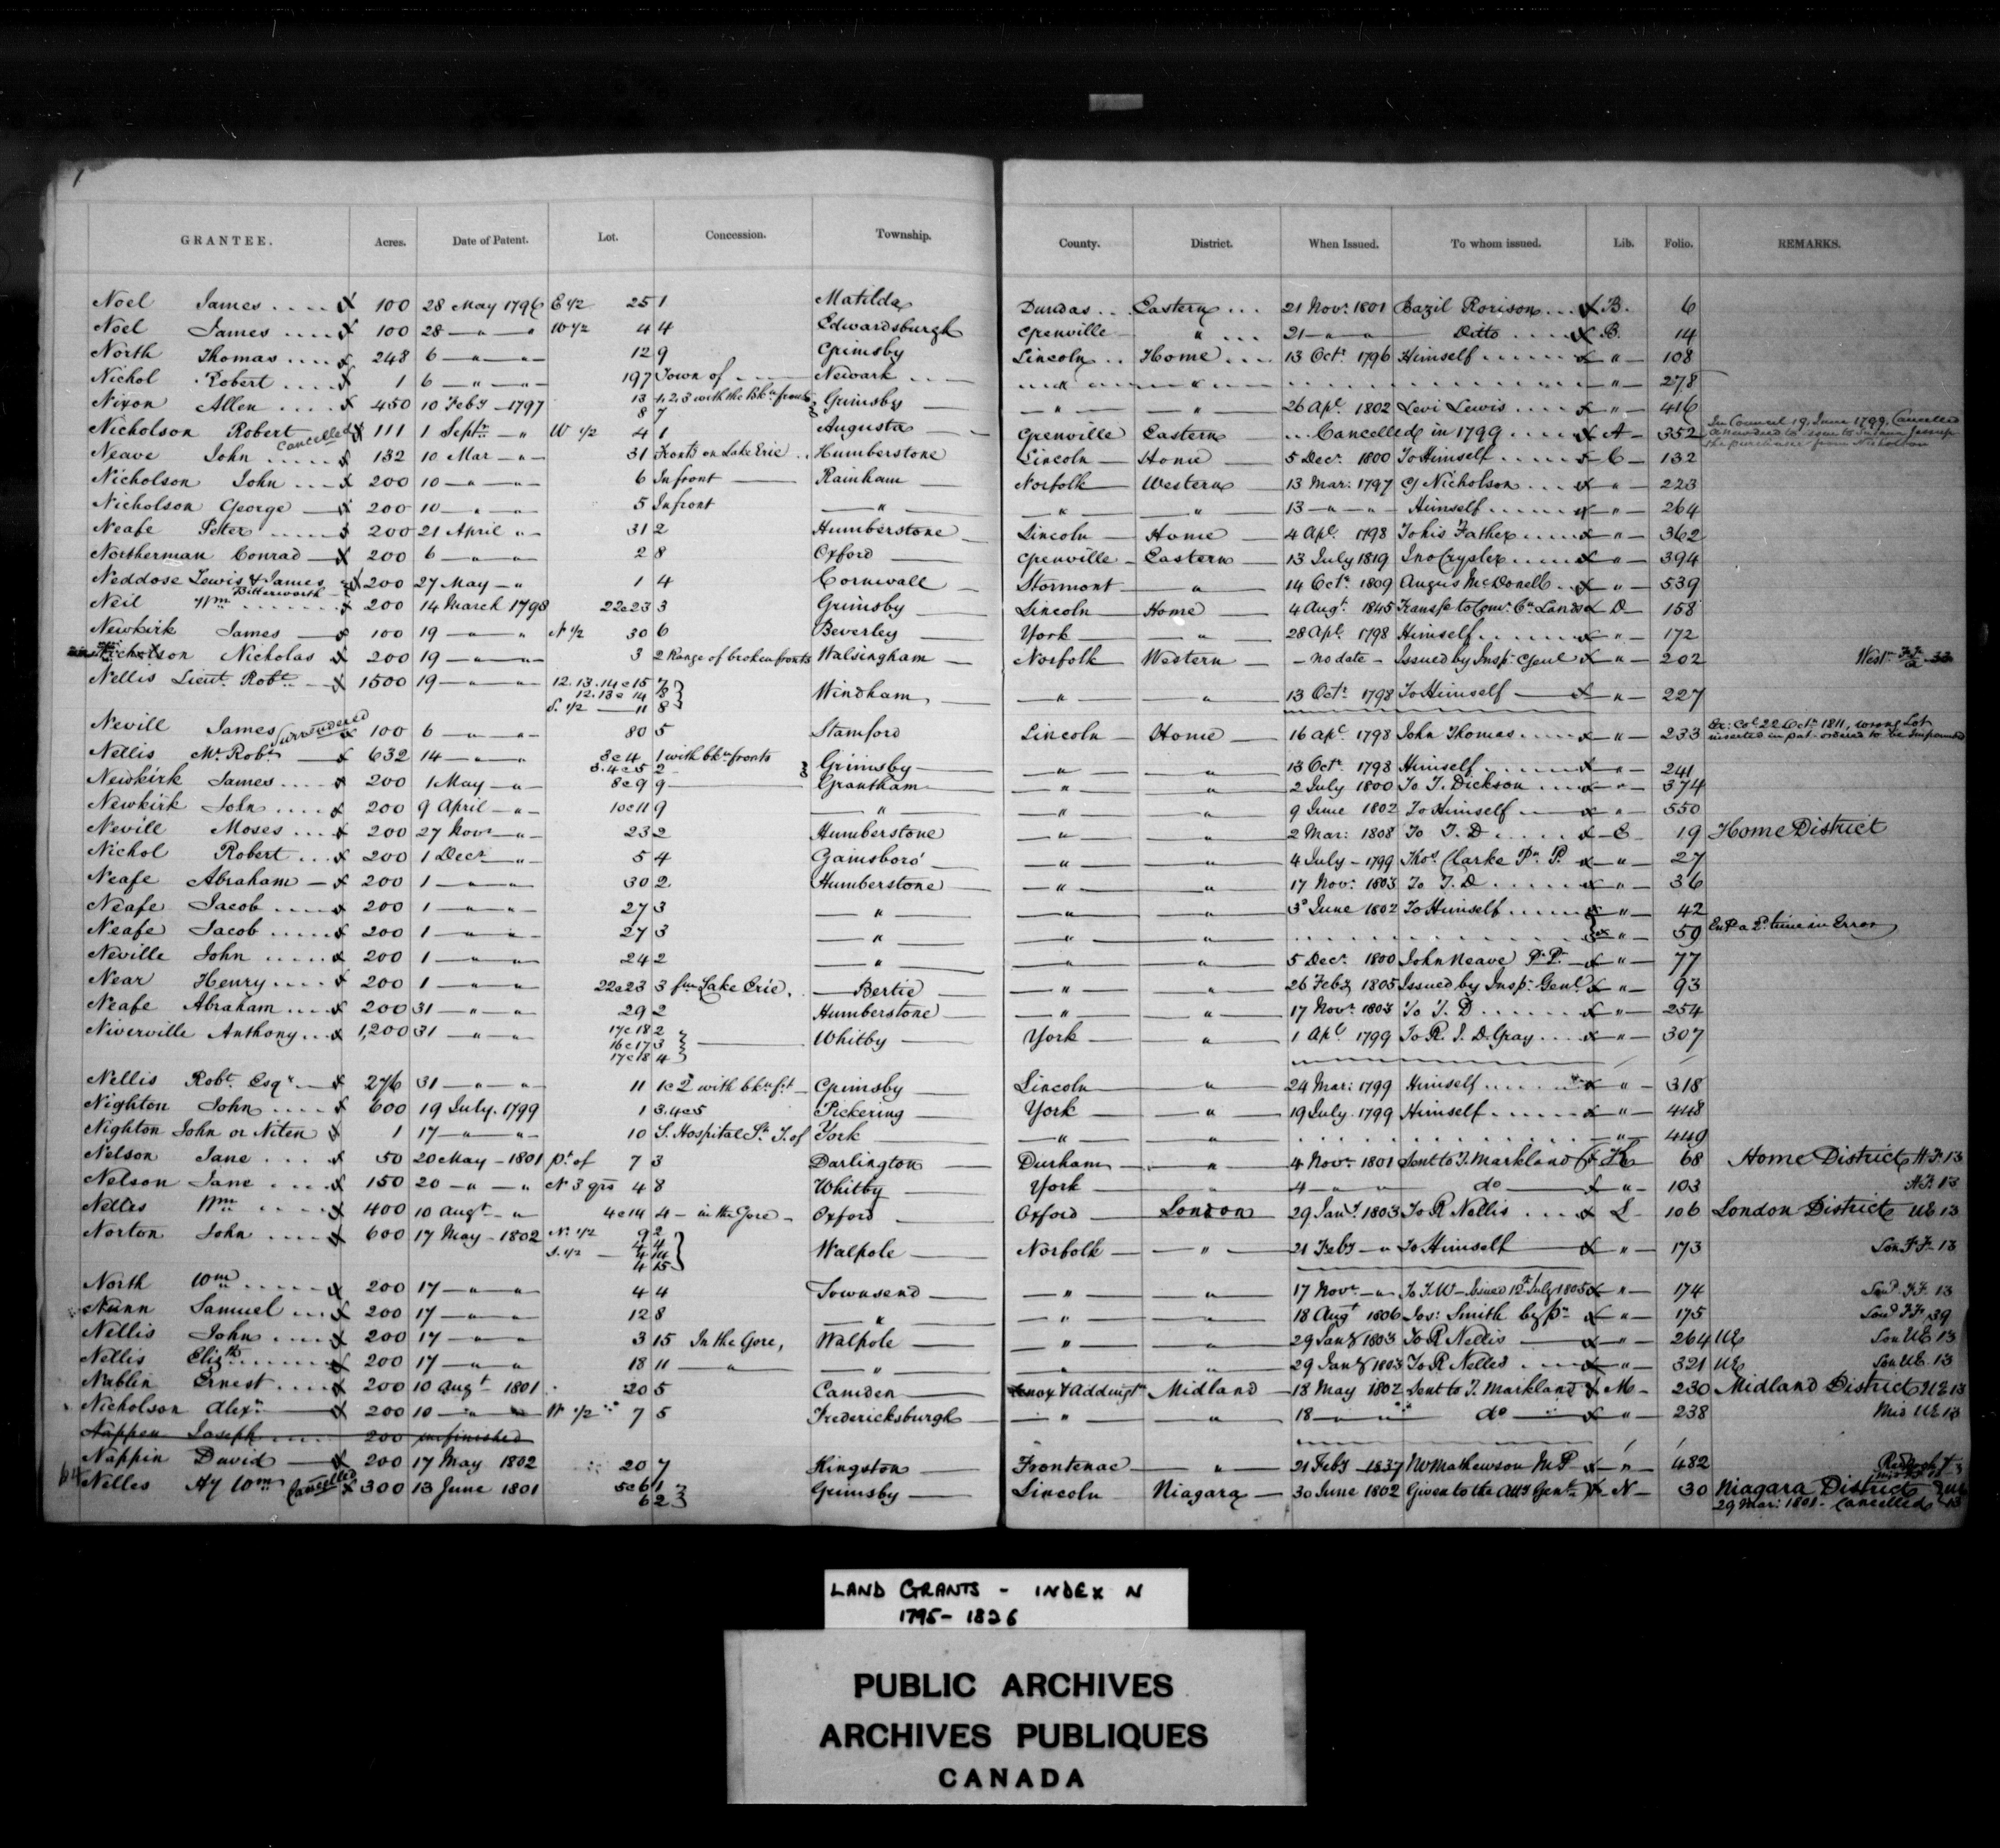 GRANTEE. Acres. Date of Patent. Lot. Concession. Township. County. District. When Issued. To whom issued. Lib. Folio. REMARKS.
Noel James .... x 100 28 May 1796 E 1/2 25 1 Matilda Dundas .. Eastern ... 21 Novr. 1801 Bazil Rorison ... x B. 6
Noel James .... x 100 28 — " — " W 1/2 4 4 Edwardsburgh Grenville " ... 21 — " — " Ditto .... x B. 14
North Thomas .... x 248 6 — " — " — 12 9 Grimsby Lincoln .. Home ... 13 Octr. 1796 Himself ...... x " — 108
Nichol Robert .... x 1 6 — " — " — 197 Town of — Newark ... — " — — " — " — 278
Nixon Allen .... x 450 10 Feby — 1797 13 1.2.3 with the Bkn fronts } Grimsby — — " — — " — 26 Apl. 1802 Levi Lewis .... x " — 416
8 7
Nicholson Robert Cancelled x 111 1 Septr. — " W 1/2 4 1 Augusta — Grenville Eastern ... Cancelled in 1799 .... x A — 352 In Council 19 June 1799, Cancelled
Neave John .... x 132 10 Mar — " — 31 Fronts on Lake Erie .. Humberstone Lincoln — Home — 5 Decr. 1800 To Himself ..... x C — 132
Nicholson John ... x 200 10 — " — " 6 In front — Rainham — Norfolk — Western — 13 Mar: 1797 G Nicholson .... x " — 223
Nicholson George — x 200 10 — " — " 5 In front — " — — " — — " — 13 — " — " — Himself ..... x " — 264
Neafe Peter ..... x 200 21 April " — 31 2 Humberstone — Lincoln — Home — 4 Apl. 1798 To his Father ..... x " — 362
Northerman Conrad — x 200 6 — " — " 2 8 Oxford — Grenville — Eastern — 13 July 1819 Jno Crysler ..... x " — 394
Neddose Lewis & James Bitterworth — x 200 27 May — " 1 4 Cornwall — Stormont — " — 14 Octr. 1809 Angus McDonell .. x " — 539
Neil Wm ....... x 200 14 March 1798 22 & 23 3 Grimsby — Lincoln — Home — 4 Augt. 1845 Transfe to Comr. Cn Lands x D — 158
Newkirk James — x 100 19 — " — " N 1/2 30 6 Beverley — York — — " — 28 Apl. 1798 Himself ...... x " — 172
Nicholson Nicholas x 200 19 — " — " — 3 2 Range of broken fronts Walsingham — Norfolk — Western — — no date — Issued by Insp. Genl x " — 202
Nellis Lieut. Robt. — x 1500 19 — " — " — 12.13.14 & 15 7 } Windham — — " — — " — 13 Octr. 1798 To Himself — x " — 227
12.13 & 14
S. 1/2 — 11 8
Nevill James Surrendered x 100 6 — " — " 80 5 Stamford Lincoln — Home — 16 Apl. 1798 John Thomas ..... x " — 233 wrong Lot
inserted in pat. ordered to be Impounded
Nellis Mr. Robt. — x 632 14 — " — " 3 & 4 1 with bkn fronts } Grimsby — — " — — " — 13 Octr. 1798 Himself ...... x " — 241
3.4 & 5 2
Newkirk James .... x 200 1 May — " — 8 & 9 9 — Grantham — — " — — " — 2 July 1800 To T. Dickson .... x " — 374
Newkirk John .... x 200 9 April — " — 10 & 11 9 — " — — " — — " — 9 June 1802 To Himself ..... x " — 550
Nevill Moses ... x 200 27 Novr — " — 23 2 Humberstone — " — — " — 2 Mar: 1808 To T. D ..... x C — 19 Home District
Nichol Robert ... x 200 1 Decr — " — 5 4 Gainsboro' — — " — — " — 4 July — 1799 Thos. Clarke Pr. P. x " — 27
Neafe Abraham — x 200 1 — " — " 30 2 Humberstone — — " — — " — 17 Nov: 1803 To T. D ..... x " — 36
Neafe Jacob ..... x 200 1 — " — " 27 3 — " — — " — — " — 3 June 1802 To Himself ..... x " — 42
Neafe Jacob ..... x 200 1 — " — " 27 3 — " — — " — — " — x " — 59 Entd a 2d. time in Error
Neville John ..... x 200 1 — " — " 24 2 — " — — " — — " — 5 Decr. 1800 John Neave Pr. P. — x " — 77
Near Henry .... x 200 1 — " — " 22 & 23 3 fm Lake Erie. — Bertie — — " — — " — 26 Feby 1805 Issued by Insp. Genl x " — 93
Neafe Abraham ... x 200 31 — " — " 29 2 Humberstone — — " — — " — 17 Novr. 1803 To T. D ...... x " — 254
Niverville Anthony ... x 1,200 31 — " — " 17 & 18 2 } — Whitby — York — — " — 1 Apl. 1799 To R. I. D. Gray .... x " — 307
16 & 17 3
17 & 18 4
Nellis Robt. Esqr — x 276 31 — " — " — 11 1 & 2 with bkn ft — Grimsby — Lincoln — " — 24 Mar: 1799 Himself ...... x " — 318
Nighton John .... x 600 19 July. 1799 1 3.4 & 5 Pickering — York — — " — 19 July. 1799 Himself ...... x " — 448
Nighton John or Niten x 1 17 — " — " — 10 S. Hospital St. T. of York — — " — — " — " — 449
Nelson Jane .... x 50 20 May — 1801 pt. of 7 3 Darlington — Durham — " — 4 Novr. 1801 Sent to T. Markland x K — 68 Home District H.F. 13
Nelson Jane .... x 150 20 — " — " N 3 qrs 4 8 Whitby — York — " — 4 — " — " do — x " — 103 H.F. 13
Nelles Wm ..... x 400 10 Augt — " 4 & 14 4 — in the Gore — Oxford — Oxford — London 29 Jany. 1803 To R Nellis .... x L — 106 London District UE 13
Norton John .... x 600 17 May — 1802 N. 1/2 9 2 } Walpole — Norfolk — — " — 21 Feby — " To Himself — x " — 173
4 4
S. 1/2 — 4 14
4 15
North Wm ..... x 200 17 — " — " 4 4 Townsend — — " — — " — 17 Novr. — " To T. W — Issued 12th July 1805 x " — 174
Nunn Samuel ... x 200 17 — " — " 12 8 — " — — " — — " — 18 Augt 1806 Jos: Smith by Pr — x " — 175
Nellis John .... x 200 17 — " — " 3 15 In the Gore, Walpole — — " — — " — 29 Jany 1803 To R Nellis — x " — 264 UE Lon UE 13
Nellis Elizth ...... x 200 17 — " — " 18 11 — " — — " — — " — — " — 29 Jany 1803 To R Nelles ... x " — 321 UE Lon UE 13
Nablin Ernest .... x 200 10 Augt 1801 20 5 Camden — Lenox & Addingtn Midland — 18 May 1802 Sent to T. Markland x M — 230 Midland District UE 13
Nicholson Alexr — x 200 10 — " — " W 1/2 7 5 Fredericksburgh — — " — — " — 18 — " — " do — x " — 238 Mid UE 13
Nappen Joseph .... 200 unfinished
Nappin David — x 200 17 May 1802 20 7 Kingston — Frontenac — " — 21 Feby 1837 Wm Mathewson M P x " — 482
64 Nelles Hy Wm Cancelled x 300 13 June 1801 5 & 6 1 } Grimsby — Lincoln Niagara — 30 June 1802 Given to the Atty Genl. x N — 30 Niagara District UE
6 2 29 Mar: 1801 — Cancelled 13
LAND GRANTS - INDEX N
1795-1826
PUBLIC ARCHIVES
ARCHIVES PUBLIQUES
CANADA